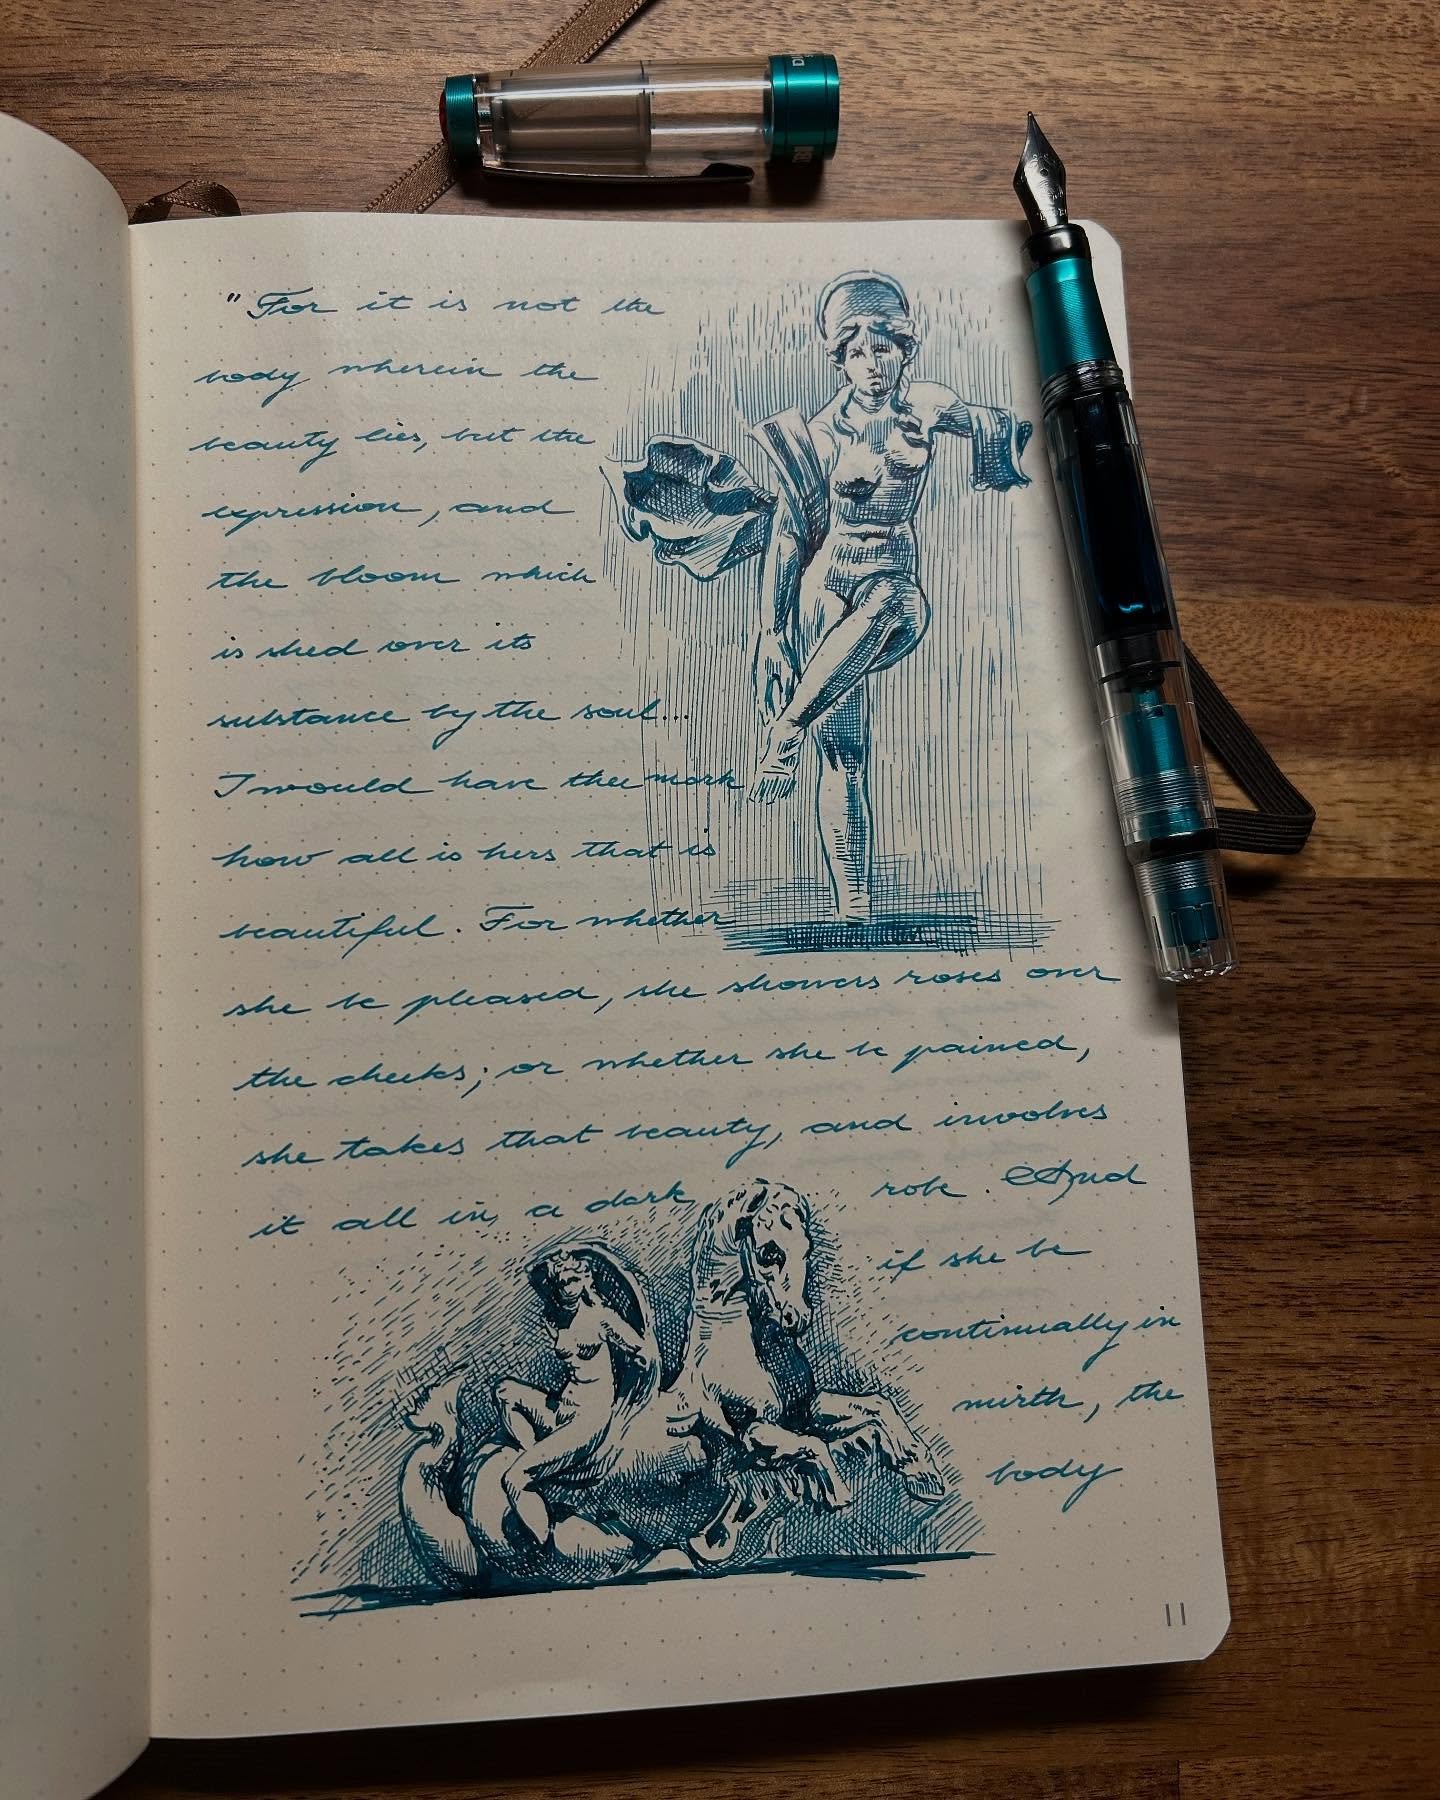 " For it is not the
body wherein the
beauty lies, but the
expression, and
the bloom which
is shed over its
substance by the soul...
I would have thee mark
how all is hers that is
beautiful. For whether
she be pleased, she showers roses over
the cheeks; or whether she be pained,
she takes that beauty, and involves
it all in a dark robe. And
if she be
continually in
mirth, the
body
11